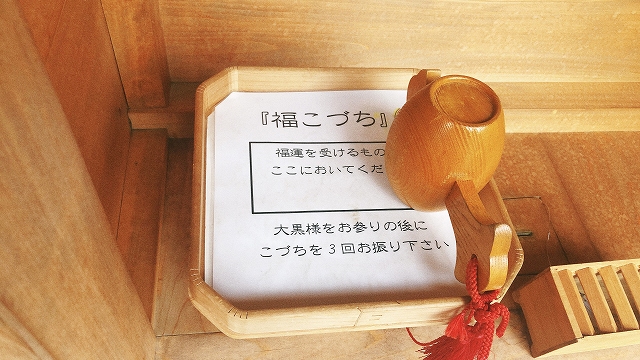 『福こづち』
福運を受けるもの
ここにおいてくだ
大黒様をお参りの後に
こづちを3回お振り下さい